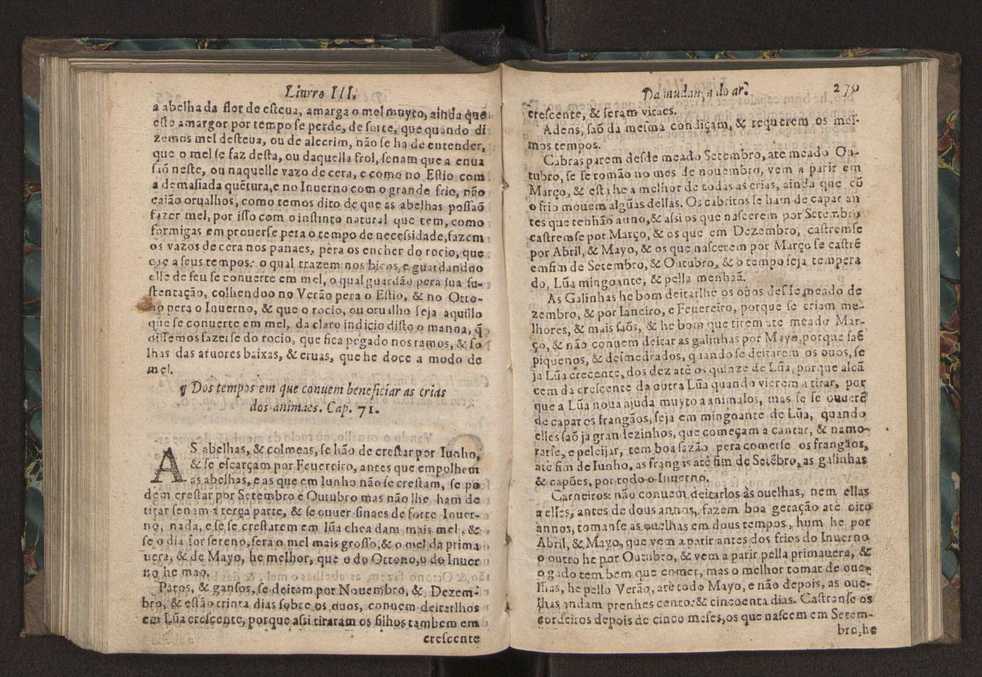 Livro III.
a abelha da flor de esteua, amarga o mel muyto, ainda que
este amargor por tempo se perde, de sorte, que quando di
zemos mel desteua, ou de alecrim, não se ha de entender,
que o mel se faz desta, ou daquella frol, senam que a enua
sió neste, ou naquelle vazo de cera, e como no Estio com
a demasiada quẽtura, e no Inuerno com o grande frio, não
caião orualhos, como temos dito de que as abelhas possaõ
fazer mel, por isso com o instinto natural que tem, como
formigas em prouerse pera o tempo de necessidade, fazem
os vazos de cera nos panaes, pera os encher do rocio, que
cae a seus tempos: o qual trazem nos bicos, e guardandoo
elle de seu se conuerte em mel, o qual guardão pera sua su-
stentação, colhendoo no Verão pera o Estio, & no Otto-
no pera o Inuerno, & que o rocio, ou orualho seja aquillo
que se conuerte em mel, da claro indicio disto o manna, q̃
dissemos fazerse do rocio, que fica pegado nos ramos, & fo
lhas das aruores baixas, & eruas, que he doce a modo de
mel.
¶ Dos tempos em que conuem beneficiar as crias
dos animaes. Cap. 71.
AS abelhas, & colmeas, se hão de crestar por Iunho,
& se escarçam por Feuereiro, antes que empolhem
as abelhas, e as que em Iunho não se crestam, se po
dem crestar por Setembro e Outubro mas não lhe ham de
tirar senam a terça parte, & se ouuer sinaes de forte Inuer-
no, nada, e se se crestarem em Lũa chea dam mais mel, &
se o dia for sereno, sera o mel mais grosso, & o mel da prima
uera, & de Mayo, he melhor, que o do Ottono, o do Inuer
no he mao.
Patos, & gansos, se deitam por Nouembro, & Dezem-
bro, & estão trinta dias sobre os ouos, conuem deitarlhos
em Lũa crescente, porque assi tiraram os filhos tambem em
crescente
Da mudança do ar. 270
crescente, & seram viuaes.
Adens, saõ da mesma condiçam, & requerem os mes-
mos tempos.
Cabras parem desde meado Setembro, ate meado Ou-
tubro, se se tomão no mes de nouembro, vem a parir em
Março, & esta he a melhor de todas as crias, ainda que cõ
o frio mouem algũas dellas. Os cabritos se ham de capar an
tes que tenhão anno, & assi os que nascerem por Setembro
castremse por Março, & os que em Dezembro, castremse
por Abril, & Mayo, & os que nascerem por Março se castrẽ
em fim de Setembro, & Outubro, & o tempo seja tempera
do, Lũa mingoante, & pella menhaã.
As Galinhas he bom deitarlhe os ouos desde meado de
zembro, & por Ianeiro, e Feuereiro, porque se criam me-
lhores, & mais saõs, & he bom que tirem ate meado Mar-
ço, & não conuem deitar as galinhas por Mayo, porque saẽ
piquenos, & desmedrados, quando se deitarem os ouos, se
ja Lũa crecente, dos dez até os quinze de Lũa, porque alcã
cem da crescente da outra Lũa quando vierem a tirar, por
que a Lũa noua ajuda muyto a animalos, mas se se ouuerẽ
de capar os frangãos, seja em mingoante de Lũa, quando
elles saõ ja grandezinhos, que começam a cantar, & namo-
rarse, e pelejar, tem boa sazão pera comerse os frangãos,
atè fim de Iunho, as frangas atè fim de Setẽbro, as galinhas
& capões, por todo o Inuerno.
Carneiros não conuem deitarlos às ouelhas, nem ellas
a elles, antes de dous annos, fazem boa geração até oito
annos, tomanse as ouelhas em dous tempos, hum he por
Abril, & Mayo, que vem a parir antes dos frios do Inuerno
o outro he por Outubro, & vem a parir pella primauera, &
o gado tem bem que comer, mas o melhor tomar de oue-
lhas, he pello Verão, até todo Mayo, e não depois, as oue-
lhas andam prenhes cento & cincoenta dias. Castranse os
cordeiros depois de cinco meses, os que nascem em Setem-
bro, he